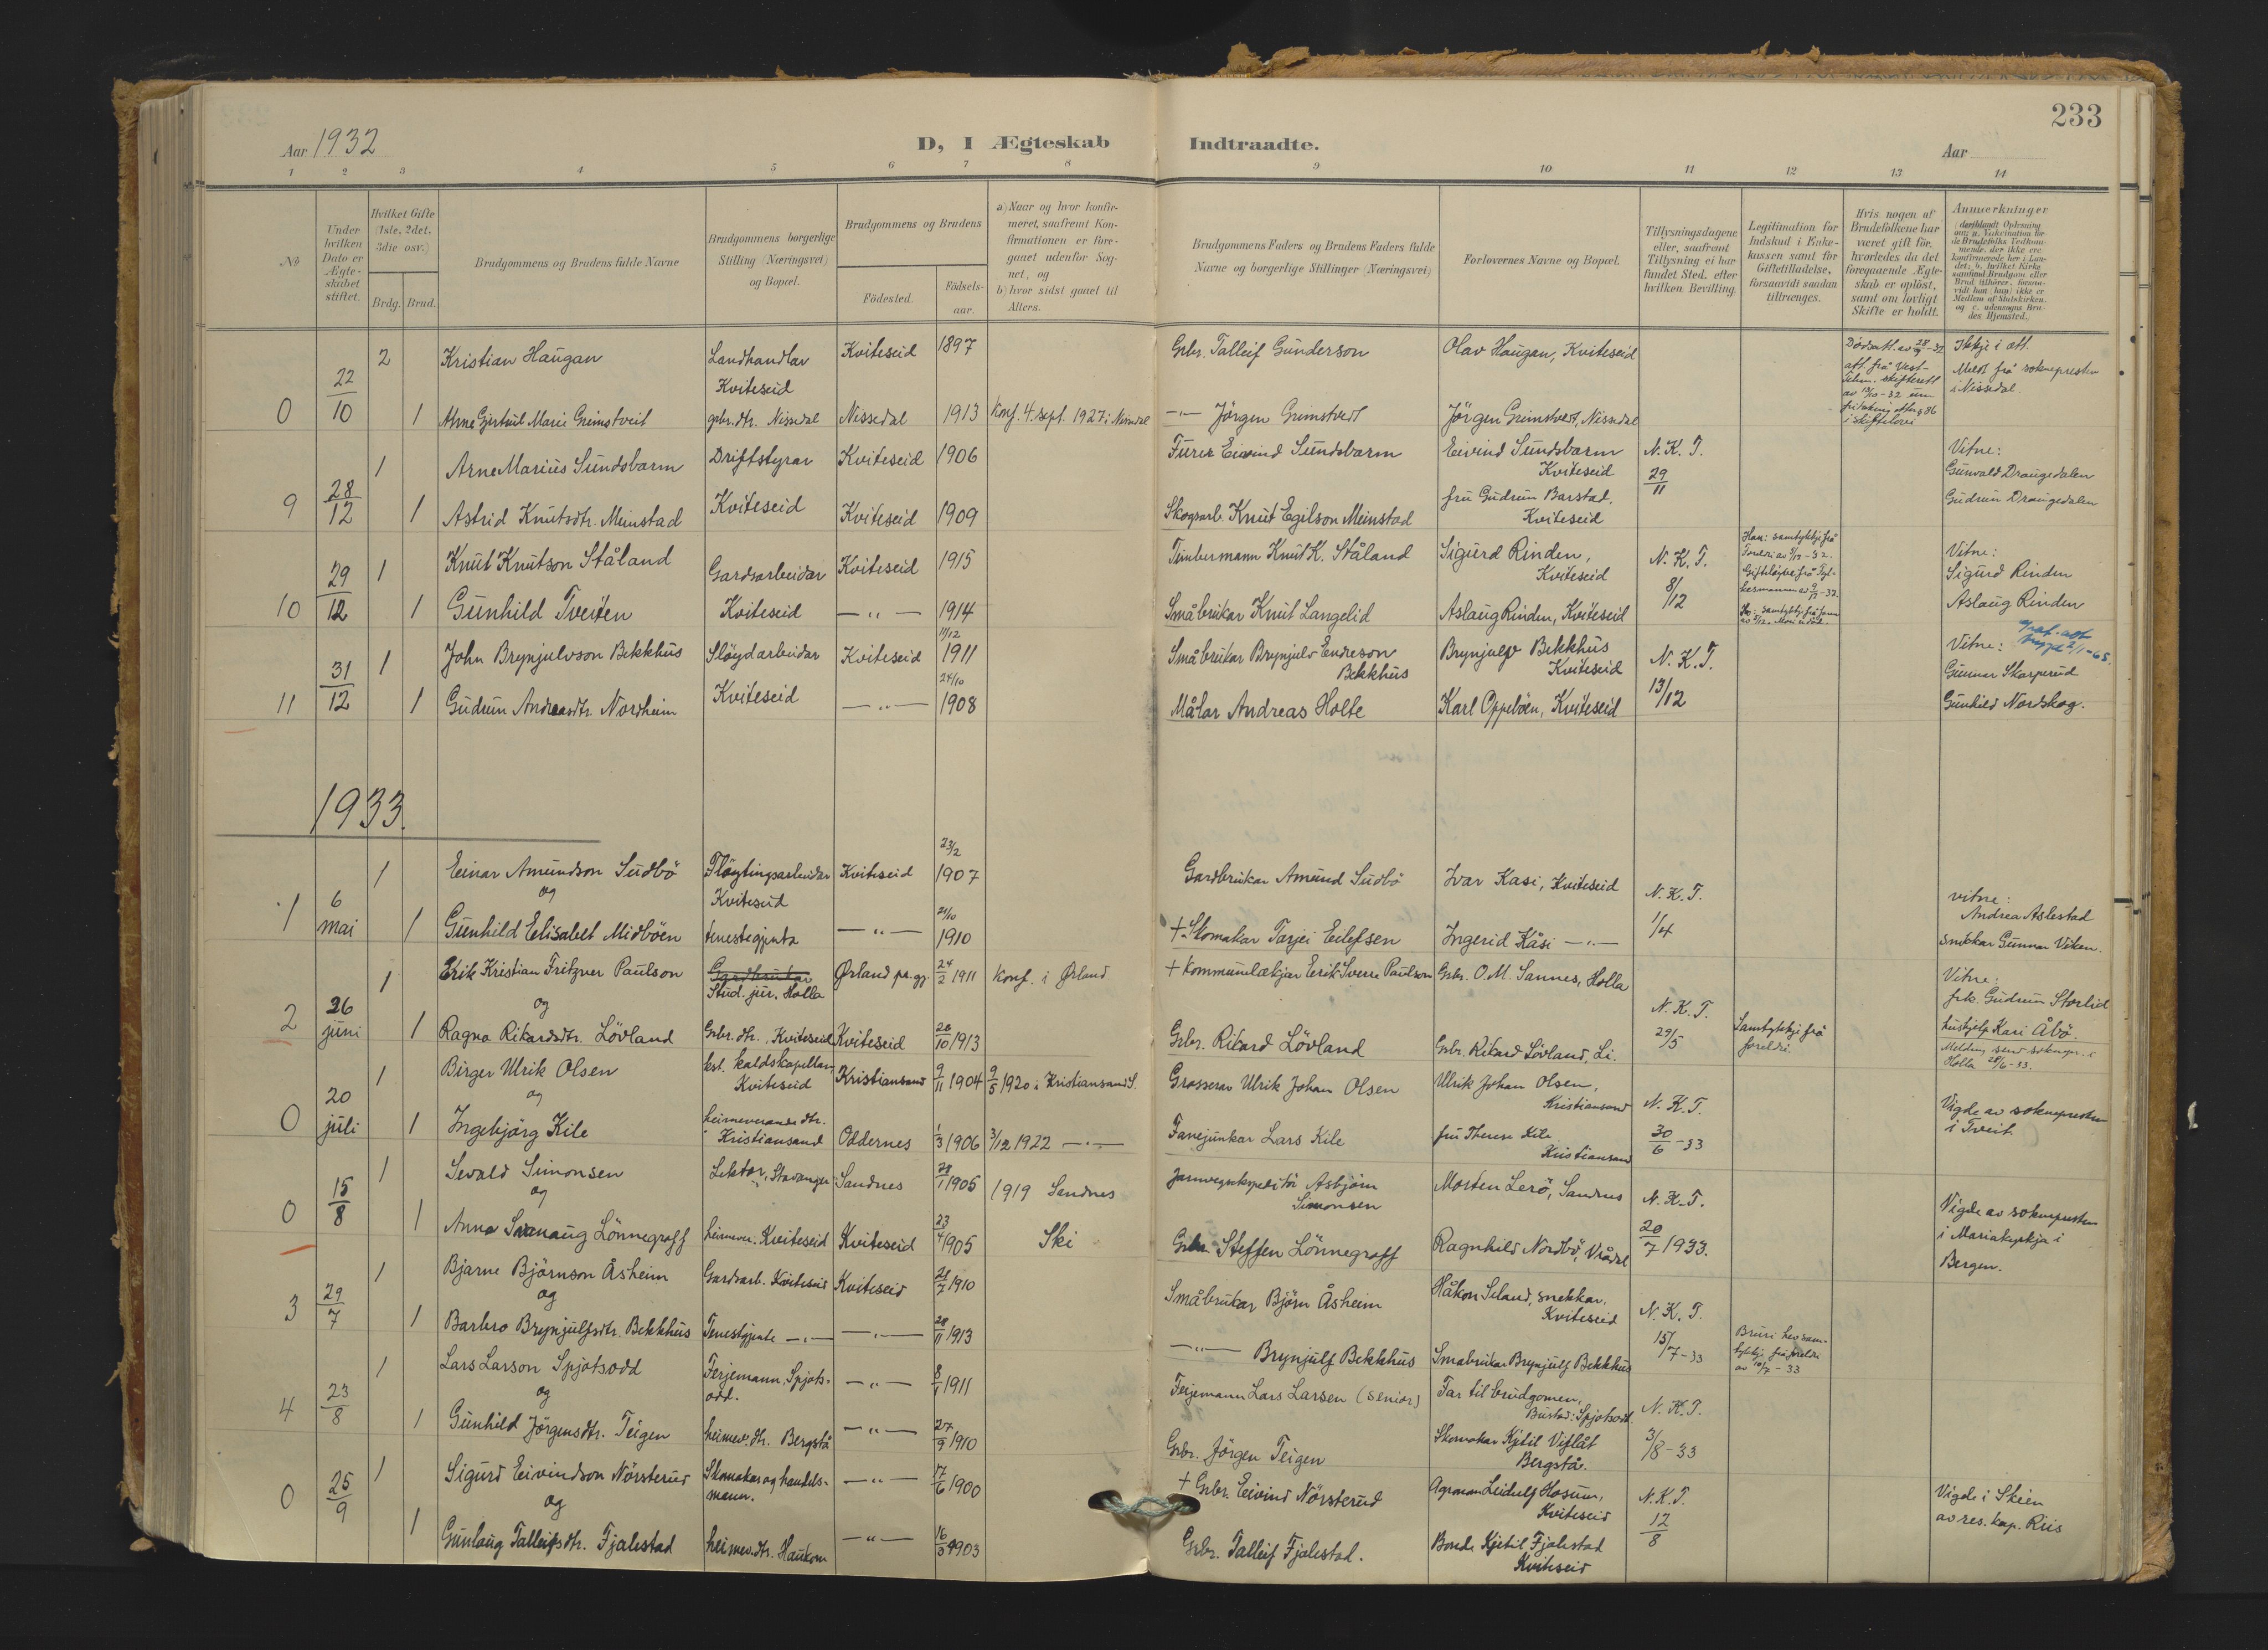 233
Aar 1932
D, I Ægteskab Indtraadte.
Aar
1 2 3 4 5 6 7 8 9 10 11 12 13 14
No
Under hvilken Dato er Ægteskabet stiftet.
Hvilket Gifte (1ste, 2det, 3die osv.)
Brdg. Brud.
Brudgommens og Brudens fulde Navne
Brudgommens borgerlige Stilling (Næringsvei) og Bopæl.
Brudgommens og Brudens
Födested.
Födselsaar.
a) Naar og hvor konfirmeret, saafremt Konfirmationen er foregaaet udenfor Sognet, og
b) hvor sidst gaaet til Alters.
Brudgommens Faders og Brudens Faders fulde Navne og borgerlige Stillinger (Næringsvei)
Forlovernes Navne og Bopæl.
Tillysningsdagene eller, saafremt Tillysning ei har fundet Sted, efter hvilken Bevilling.
Legitimation for Indskud i Enkekassen samt for Giftetilladelse, forsaavidt saadan tiltrænges.
Hvis nogen af Brudefolkene har været gift før, hvorledes da det foregaaende Ægteskab er oplöst, samt om lovligt Skifte er holdt.
Anmerkninger
2 Kristian Haugan Landhandlar Kviteseid Kviteseid 1897 Gbr. Talleif Gunderson Olav Haugan, Kviteseid Dødsatt. av 28/9-32 att. frå Vest-Telem. skifterett av 13/10-32 um skiftelovi Ikkje i ætt. Meldt frå soknepresten i Nissedal.
0 22/10 1 Anne Gjertrud Marie Grimstveit gbr.dtr. Nissedal Nissedal 1913 Konf. 4. sept. 1927 i Nissedal -"- Jörgen Grimstvedt Jörgen Grimstvedt, Nissedal
1 Arne Marius Sundsbarm Driftstyrar Kviteseid 1906 Furer Eivind Sundsbarm Eivind Sundsbarm Kviteseid N. K. T. 29/11 Vitne: Gunvald Draugedalen
9 28/12 1 Astrid Knutsdtr. Meinstad Kviteseid Kviteseid 1909 Skogsarb. Knut Egilson Meinstad fru Gudrun Barstad, Kviteseid Gudrun Draugedalen
1 Knut Knutson Ståland Gardsarbeidar Kviteseid 1915 Timbermann Knut K. Ståland Sigurd Rinden, Kviteseid N. K. T. 8/12 Han: samtykkji frå Foreldri Vitne: Sigurd Rinden
10 29/12 1 Gunhild Tveiten Kviteseid -"- 1914 Småbrukar Knut Langelid Aslaug Rinden, Kviteseid Aslaug Rinden
1 John Brynjulvson Bekkhus Slöydarbeidar Kviteseid 11/12 1911 Småbrukar Brynjulv Endreson Bekkhus Brynjulv Bekkhus Kviteseid N. K. T. 13/12 Vitne: Gunnar Skarperud
11 31/12 1 Gudrun Andreasdtr. Nordheim Kviteseid -"- 24/10 1908 Målar Andreas Holte Karl Oppeböen, Kviteseid Gunhild Nordskog.
1933.
1 Einar Amundson Sudbö Flöytingsarbeidar Kviteseid Kviteseid 23/2 1907 Gardbrukar Amund Sudbö Ivar Kasi, Kviteseid N. K. T. 1/4 vitne: Andrea Aslestad
og
1 6 mai 1 Gunhild Elisabet Midböen tenestegjenta -"- 21/10 1910 + Skomakar Tarjei Eilefsen Ingerid Kåsi -"- snikkar Gunnar Viken.
1 Erik Kristian Fritzner Paulson Gardbrukar Stud. jur. Holla Ørland pr.gj. 24/2 1911 Konf. i Ørland + Kommunelækjar Erik Sverre Paulson Gbr. O. M. Sannes, Holla N. K. T. 29/5 Vitne: frk. Gudrun Storlid
og
2 26 juni 1 Ragna Rikardsdtr. Lövland Gbr.dtr., Kviteseid Kviteseid 26/10 1913 Gbr. Rikard Lövland Gbr. Rikard Lövland, Li. Samtykkji frå foreldri hushjelp Kari Åbö. Melding send sokne i Holla 28/6-33.
1 Birger Ulrik Olsen kst. kaldskapellan Kviteseid Kristiansand 9/11 1904 9/5 1920 i Kristiansand S. Grosserar Ulrik Johan Olsen Ulrik Johan Olsen, Kristiansand N. K. T. 30/6-33
og
0 20 juli 1 Ingebjörg Kile heimeverande dtr. i Kristiansand Oddernes 1/3 1906 3/12 1922 -"- Fanejunkar Lars Kile fru Therese Kile Kristiansand Vigde av soknepresten i Tveit
1 Sevald Simonsen Lektor, Stavanger Sandnes 28/1 1905 1919 Sandnes Jarnvegsekspeditör Asbjörn Simonsen Morten Lerö, Sandnes N. K. T. 20/7 1933.
og
0 15/8 1 Anna Svanaug Lönnegraff heimever. Kviteseid Kviteseid 23/4 1905 Ski Gbr. Steffen Lönnegraff Ragnhild Nordbö, Vrådal Vigde av soknepresten i Mariakyrkja i Bergen.
1 Bjarne Björnson Åsheim Gardsarb. Kviteseid Kviteseid 21/7 1910 Småbrukar Björn Åsheim Håkon Seland, snekkar. Kviteseid N. K. T. 15/7-33
og
3 29/7 1 Barbro Brynjulfsdtr. Bekkhus Tenestgjente -"- -"- 28/11 1913 -"- Brynjulf Bekkhus Småbrukar Brynjulf Bekkhus Bruri hev samtykkji frå foreldri av 10/7-33
1 Lars Larson Spjotsodd Ferjemann, Spjotsodd. -"- 8/1 1911 Ferjemann Lars Larsen (senior) Far til brudgomen, Bustad: Spjotsodd N. K. T. 3/8-33
og
4 23/8 1 Gunhild Jörgensdtr. Teigen heimev. dtr. Bergstå -"- 27/9 1910 Gbr. Jörgen Teigen Skomakar Kjetil Viflåt Bergstå.
1 Sigurd Eivindson Nörsterud Skomakar og handelsmann. -"- 17/6 1900 + Gbr. Eivind Nörsterud Agronom Leidulf Hosum, Kviteseid N. K. T. 12/8 Vigde i Skien av res. kap. Riis
og
0 25/9 1 Gunlaug Talleifsdtr. Fjalestad heimev. dtr. Haukom -"- 1903 Gbr. Talleif Fjalestad. Bonde Kjetil Fjalestad Kviteseid